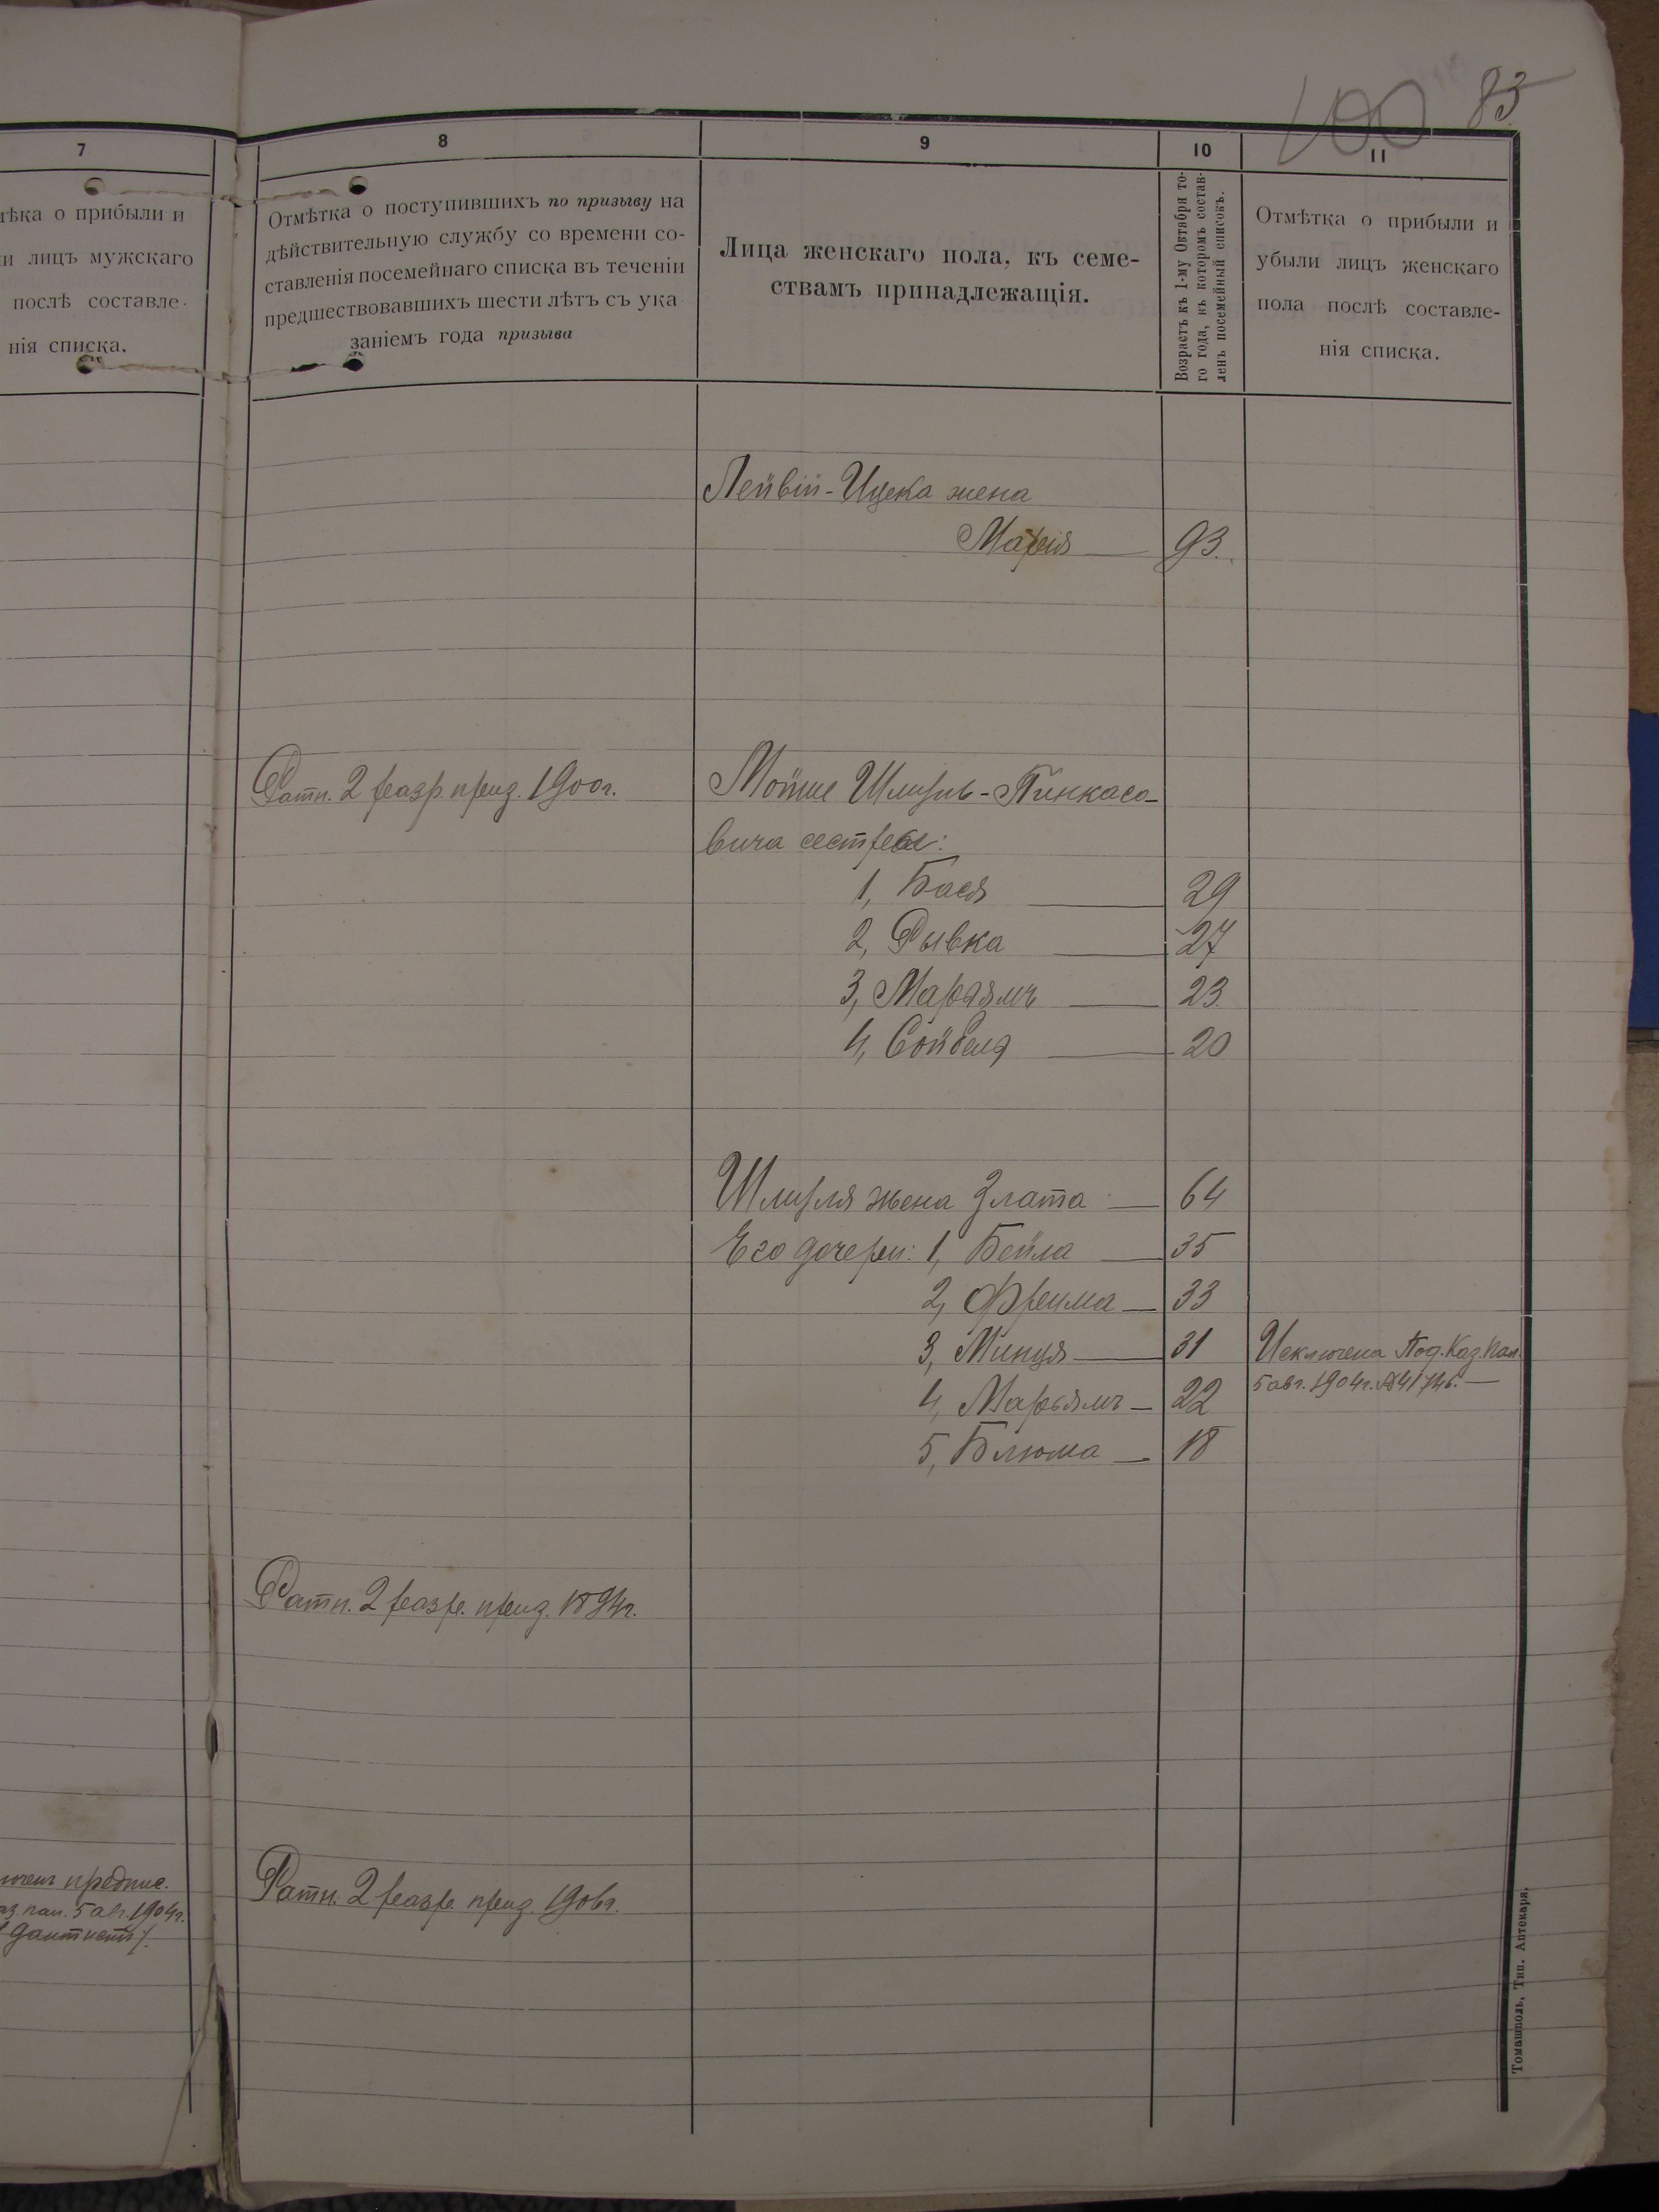 100 83
7
8
9
10
11
ѣка о прибыли и
и лицъ мужскаго
послѣ составле-
нія списка.
Отмѣтка о поступившихъ по призыву на
дѣйствительную службу со времени со-
ставленія посемейнаго списка въ теченіи
предшествовавшихъ шести лѣтъ съ ука
заніемъ года призыва
Лица женскаго пола, къ семе-
ствамъ принадлежащія.
Возрастъ къ 1-му Октября то-
го года, къ которомъ состав-
ленъ посемейный списокъ.
Отмѣтка о прибыли и
убыли лицъ женскаго
пола послѣ составле-
нія списка.
Лейвій-Ицека жена
Марія 93.
Ратн. 2 разр. приз. 1900г.
Мойше Шлиоль-Пинкасо-
вича сестры:
1, Бася 29
2, Рывка 27
3, Марьямъ 23.
4, Сойбеля 20
жена Злата 64
Его дочери: 1, Бейла 35
2, Фрейма 33
3, Минця 31 Исключена Под. Каз. Пал.
5 авг. 1904г. №41746.
4, Марьямъ 22
5, Блюма 18
Ратн. 2 разр. приз. 1894г.
юченъ предпис.
аз. пал. 5 авг. 1904г.
Ратн. 2 разр. приз. 1906г.
Томашполь, Тип. Аптекаря.